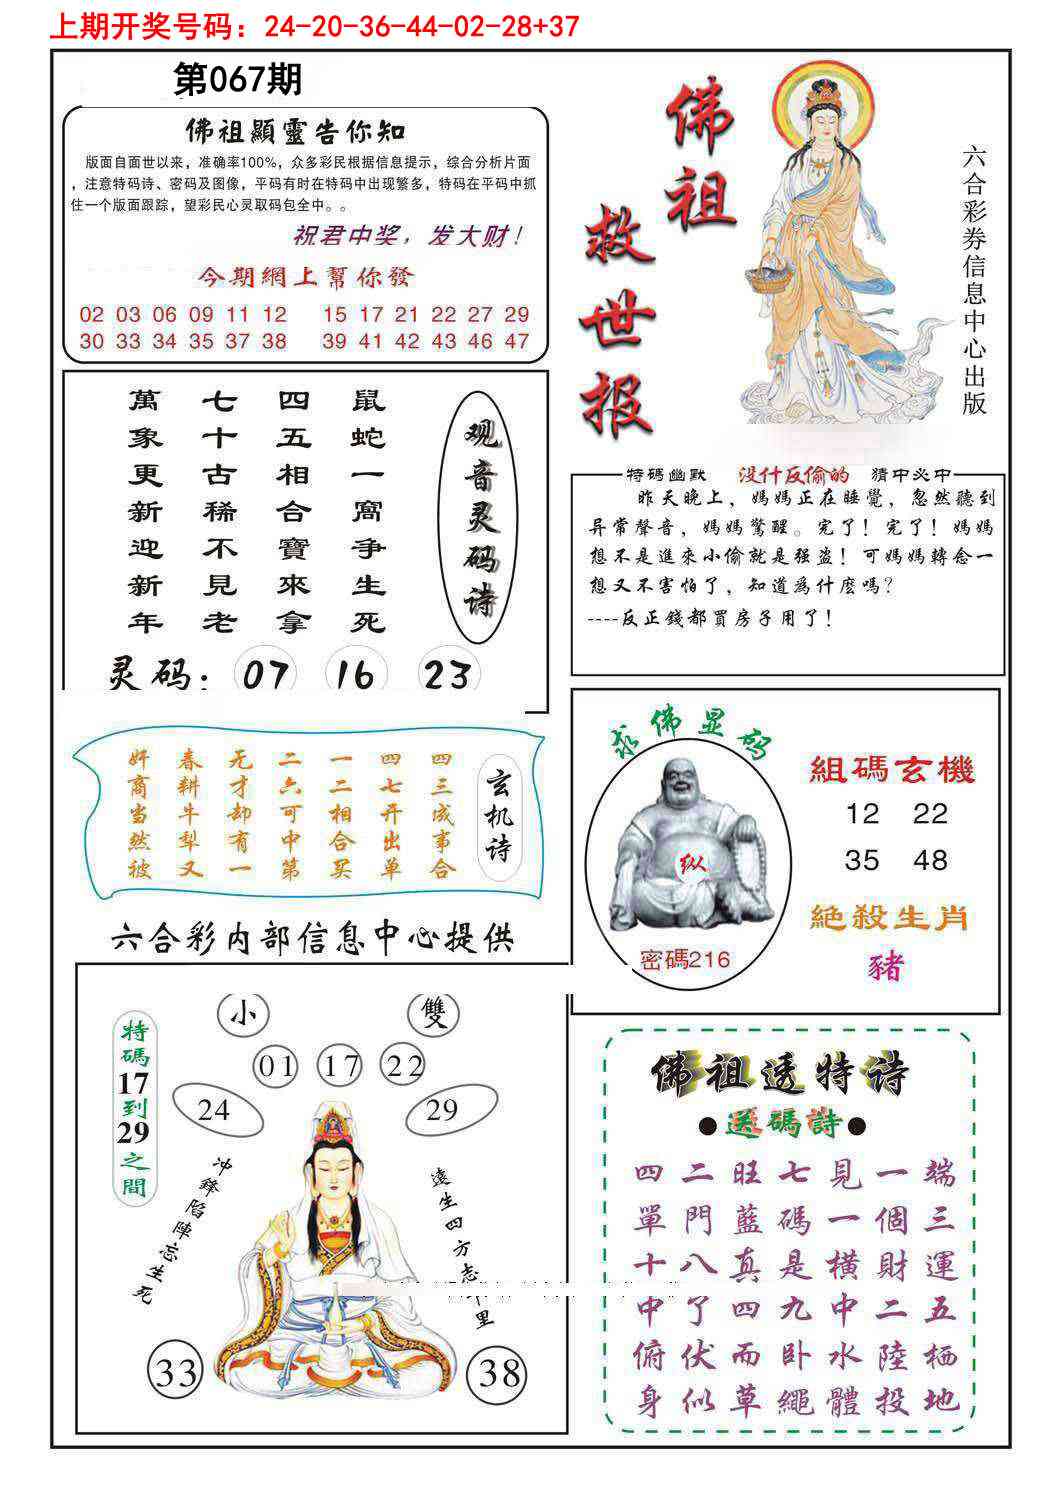 上期开奖号码：24-20-36-44-02-28+37
第067期
佛祖顯靈告你知
版面自面世以来，准确率100%，众多彩民根据信息提示，综合分析片面
，注意特码诗、密码及图像，平码有时在特码中出现繁多，特码在平码中抓
住一个版面跟踪，望彩民心灵取码包全中。。
祝君中奖，发大财！
今期網上幫你發
02 03 06 09 11 12 15 17 21 22 27 29
30 33 34 35 37 38 39 41 42 43 46 47
佛祖
救世报
六合彩券信息中心出版
鼠蛇一窩争生死
四五相合寶來拿
七十古稀不見老
萬象更新迎新年
观音灵码诗
灵码：07 16 23
特碼幽默 没什反偷的 猜中必中
昨天晚上，媽媽正在睡覺，忽然聽到
异常聲音，媽媽驚醒。完了！完了！媽媽
想不是進來小偷就是强盗！可媽媽轉念一
想又不害怕了，知道爲什麽嗎？
----反正錢都買房子用了！
玄机诗
四三成事合
四七开出单
一二相合买
二六可中第
无才却有一
春耕牛犁又
奸商当然彼
求佛显码
纵
密碼216
組碼玄機
12 22
35 48
絶殺生肖
豬
六合彩内部信息中心提供
小 雙
01 17 22
24 29
特碼17到29之間
冲鋒陷陣忘生死
遠生四方志
里
33 38
佛祖透特诗
●送碼詩●
四二旺七見一端
單門藍碼一個三
十八真是横財運
中了四九中二五
俯伏而卧水陸栖
身似草繩體投地